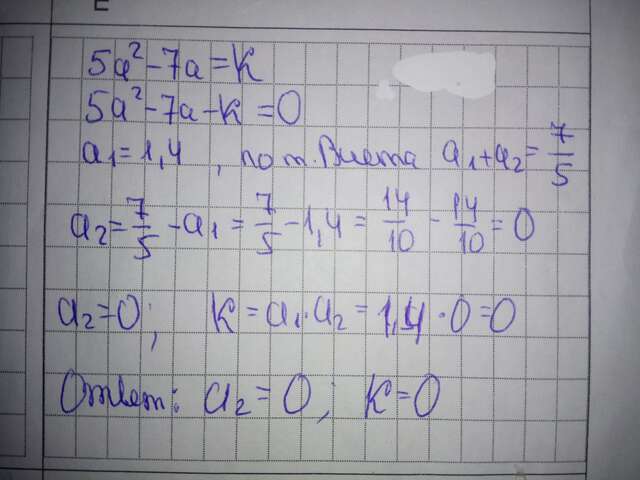 5a² - 7a = k
5a² - 7a - k = 0
a₁ = 1,4 , по т. Виета a₁ + a₂ = 7/5
a₂ = 7/5 - a₁ = 7/5 - 1,4 = 14/10 - 14/10 = 0
a₂ = 0; k = a₁ · a₂ = 1,4 · 0 = 0
Ответ: a₂ = 0; k = 0